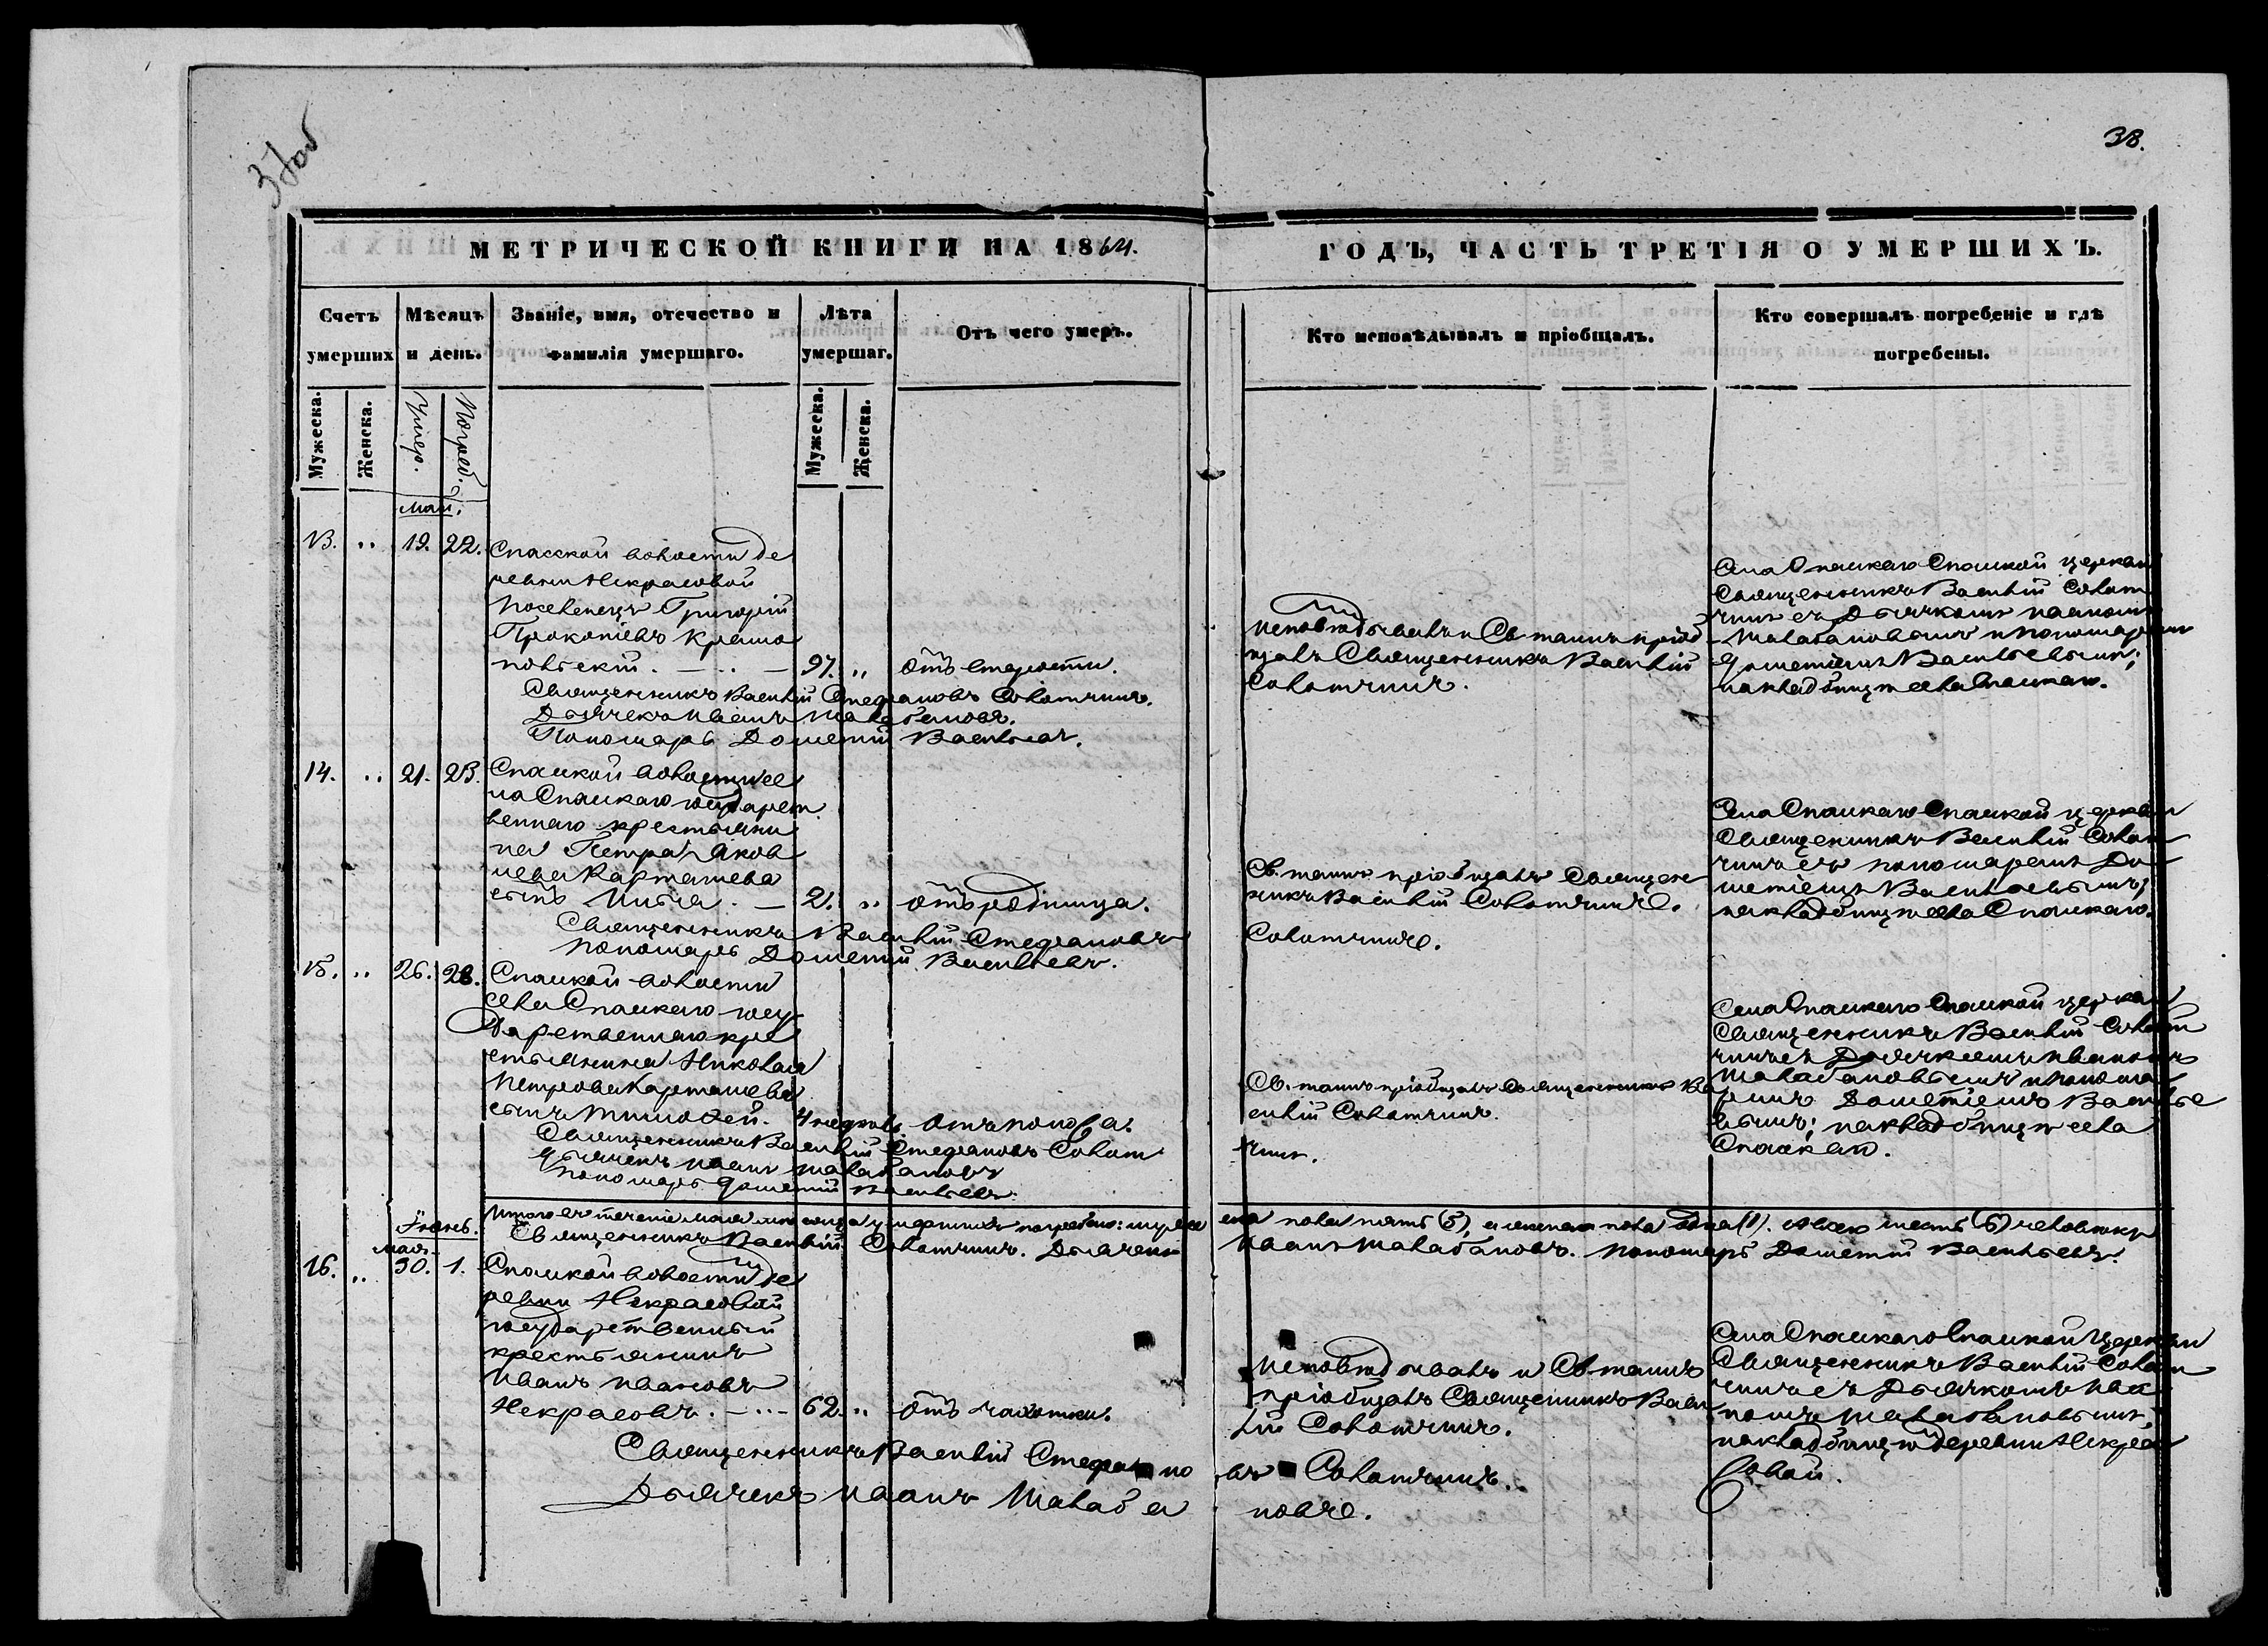 37об
38.
МЕТРИЧЕСКОЙ КНИГИ НА 1864.
ГОДЪ, ЧАСТЬ ТРЕТІЯ О УМЕРШИХЪ.
Счетъ умерших
Мѣсяцъ и день.
Званіе, имя, отечество и фамилія умершаго.
Лѣта умершаг.
Отъ чего умеръ.
Кто исповѣдывалъ и пріобщалъ.
Кто совершалъ погребеніе и гдѣ погребены.
Мужеска.
Женска.
Умер.
Погреб.
Мужеска.
Женска.
Май.
13. „ 19. 22.
Спасской волости де
ревни Некрасовой
поселенецъ Григорій
Прокопіевъ
97. „ отъ старости.
Исповѣдывалъ и Св. таинъ пріоб
щалъ Священникъ Василій
Солотчинъ.
Села Спаскаго Спаской церкви
Священникъ Василій Солот
чинъ съ Дьячкомъ Иваномъ
Шалабановымъ и Пономаремъ
Дометіемъ Васильевымъ;
на кладбищѣ села Спаскаго.
Священникъ Василій Стефановъ Солотчинъ.
Дьячекъ Иванъ Шалабановъ.
Пономарь Дометій Васильевъ.
14. „ 21. 23.
Спаской волости се
ла Спаскаго государст
веннаго крестьяни
на Петра Яков
лева Карташева
сынъ Илья. — 2. „ отъ родимца.
Св. таинъ пріобщалъ Священ
никъ Василій Солотчинъ.
Села Спаскаго Спаской церкви
Священникъ Василій Солот
чинъ съ пономаремъ До
метіемъ Васильевымъ;
на кладбищѣ села Спаскаго.
Священникъ Василій Стефановъ
Солотчинъ.
Пономарь Дометій Васильевъ.
15. „ 26. 28.
Спаской волости
села Спаскаго госу
дарственнаго кре
стьянина Николая
Петрова Карташева
сынъ Тимофей. 4 недѣль отъ поноса.
Св. таинъ пріобщалъ Священникъ Ва
силій Солотчинъ.
Села Спаскаго Спаской церкви
Священникъ Василій Солот
чинъ съ Дьячкомъ Иваномъ
Шалабановымъ и Понома
ремъ Дометіемъ Василье
вымъ; на кладбищѣ села
Спаскаго.
Священникъ Василій Стефановъ Солот
чинъ.
Дьячекъ Иванъ Шалабановъ
Пономарь Дометій Васильевъ.
Итого въ теченіе мая мѣсяца умершихъ погребено: муже
ска пола пять (5), а женска пола одна (1). А всѣхъ шесть (6) человѣкъ
Священникъ Василій Солотчинъ. Дьячекъ
Иванъ Шалабановъ. Пономарь Дометій Васильевъ.
Іюнь.
мая
16. „ 30. 1.
Спаской волости де
ревни Некрасовой
государственный
крестьянинъ
Иванъ Ивановъ
Некрасовъ. — 62. „ отъ чахотки.
Исповѣдывалъ и Св. таинъ
пріобщалъ Священникъ Васи
лій Солотчинъ.
Села Спаскаго Спаской Церкви
Священникъ Василій Солот
чинъ съ Дьячкомъ Ива
номъ Шалабановымъ;
на кладбищѣ деревни Некра
совой.
Священникъ Василій Стефано
въ Солотчинъ.
Дьячекъ Иванъ Шалаба
новъ.